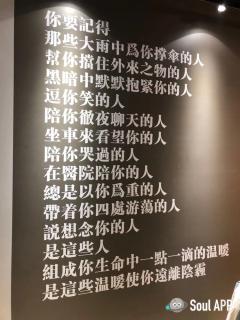 你要記得
那些大雨中為你撐傘的人
幫你擋住外來之物的人
黑暗中默默抱緊你的人
逗你笑的人
陪你徹夜聊天的人
坐車來看望你的人
陪你哭過的人
在醫院陪你的人
總是以你為重的人
帶着你四處游蕩的人
說想念你的人
是這些人
組成你生命中一點一滴的温暖
是這些温暖使你遠離陰霾
Soul APP